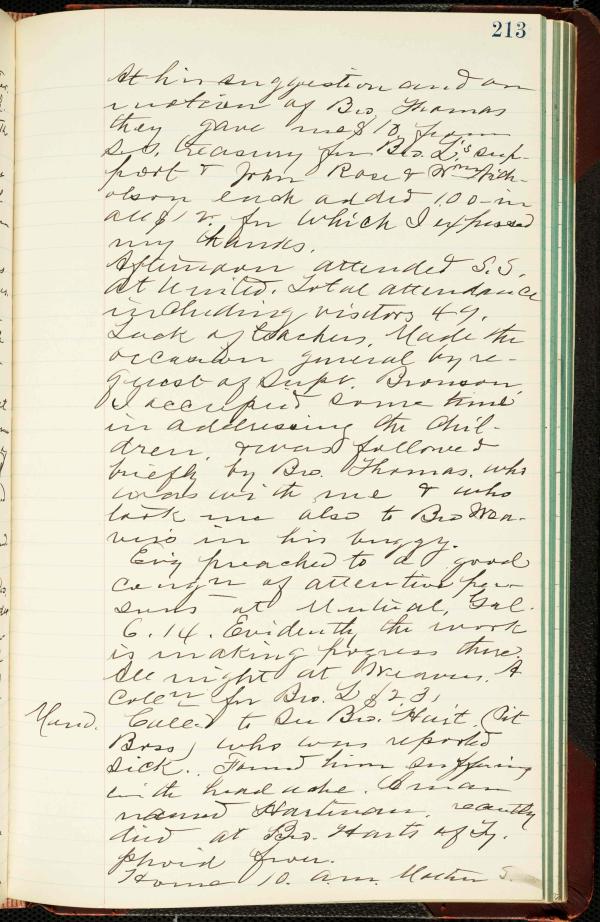 213
At his suggestion and on
motion of Bro. Thomas
they gave me $10. from
S.S. treasury for Bro. L's sup-
port & John Rose & Wm Nich-
olson each added 1.00 in
all $12. for which I expressed
my thanks.
Afternoon attended S.S.
at United. Total attendance
including visitors 49.
Lack of teachers. Made the
occasion general by re-
quest of Supt. Bronson.
I occupied some time
in addressing the chil-
dren, & was followed
briefly by Bro. Thomas, who
was with me & who
took me also to Bro Wea-
ver's in his buggy.
Ev'g preached to a good
congn of attentive per-
sons at United, Gal.
6. 14. Evidently the work
is making progress there.
All night at Weavers. A
coln for Bro. L $2 31
Mond. Called to see Bro. Hart (Pit
Boss) who was reported
sick. Found him suffering
with headache. A man
named Hartman, recently
died at Bro. Harts of Ty-
phoid fever.
Home 10. a.m. Mother S.